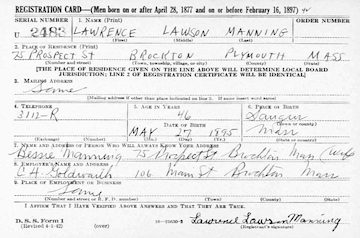 REGISTRATION CARD—(Men born on or after April 28, 1877 and on or before February 16, 1897)
SERIAL NUMBER 1. NAME (Print) ORDER NUMBER
U 2483 LAWRENCE LAWSON MANNING
(First) (Middle) (Last)
2. PLACE OF RESIDENCE (Print)
75 PROSPECT ST BROCKTON PLYMOUTH MASS
(Number and street) (Town, township, village, or city) (County) (State)
[THE PLACE OF RESIDENCE GIVEN ON THE LINE ABOVE WILL DETERMINE LOCAL BOARD
JURISDICTION; LINE 2 OF REGISTRATION CERTIFICATE WILL BE IDENTICAL]
3. MAILING ADDRESS
Same
[Mailing address if other than place indicated on line 2. If same insert word same]
4. TELEPHONE 5. AGE IN YEARS 6. PLACE OF BIRTH
3112-R 46
DATE OF BIRTH (Town or county)
MAY 27 1895 Mass
(Exchange) (Number) (Mo.) (Day) (Yr.) (State or country)
7. NAME AND ADDRESS OF PERSON WHO WILL ALWAYS KNOW YOUR ADDRESS
Bessie Manning 75 Prospect St Brockton Mass (Wife)
8. EMPLOYER'S NAME AND ADDRESS
C A Goldwaith 106 Main St Brockton Mass
9. PLACE OF EMPLOYMENT OR BUSINESS
Same
(Number and street or R. F. D. number) (Town) (County) (State)
I AFFIRM THAT I HAVE VERIFIED ABOVE ANSWERS AND THAT THEY ARE TRUE.
D. S. S. Form 1
(Revised 4-1-42) (over) Lawrence Lawson Manning
(Registrant's signature)